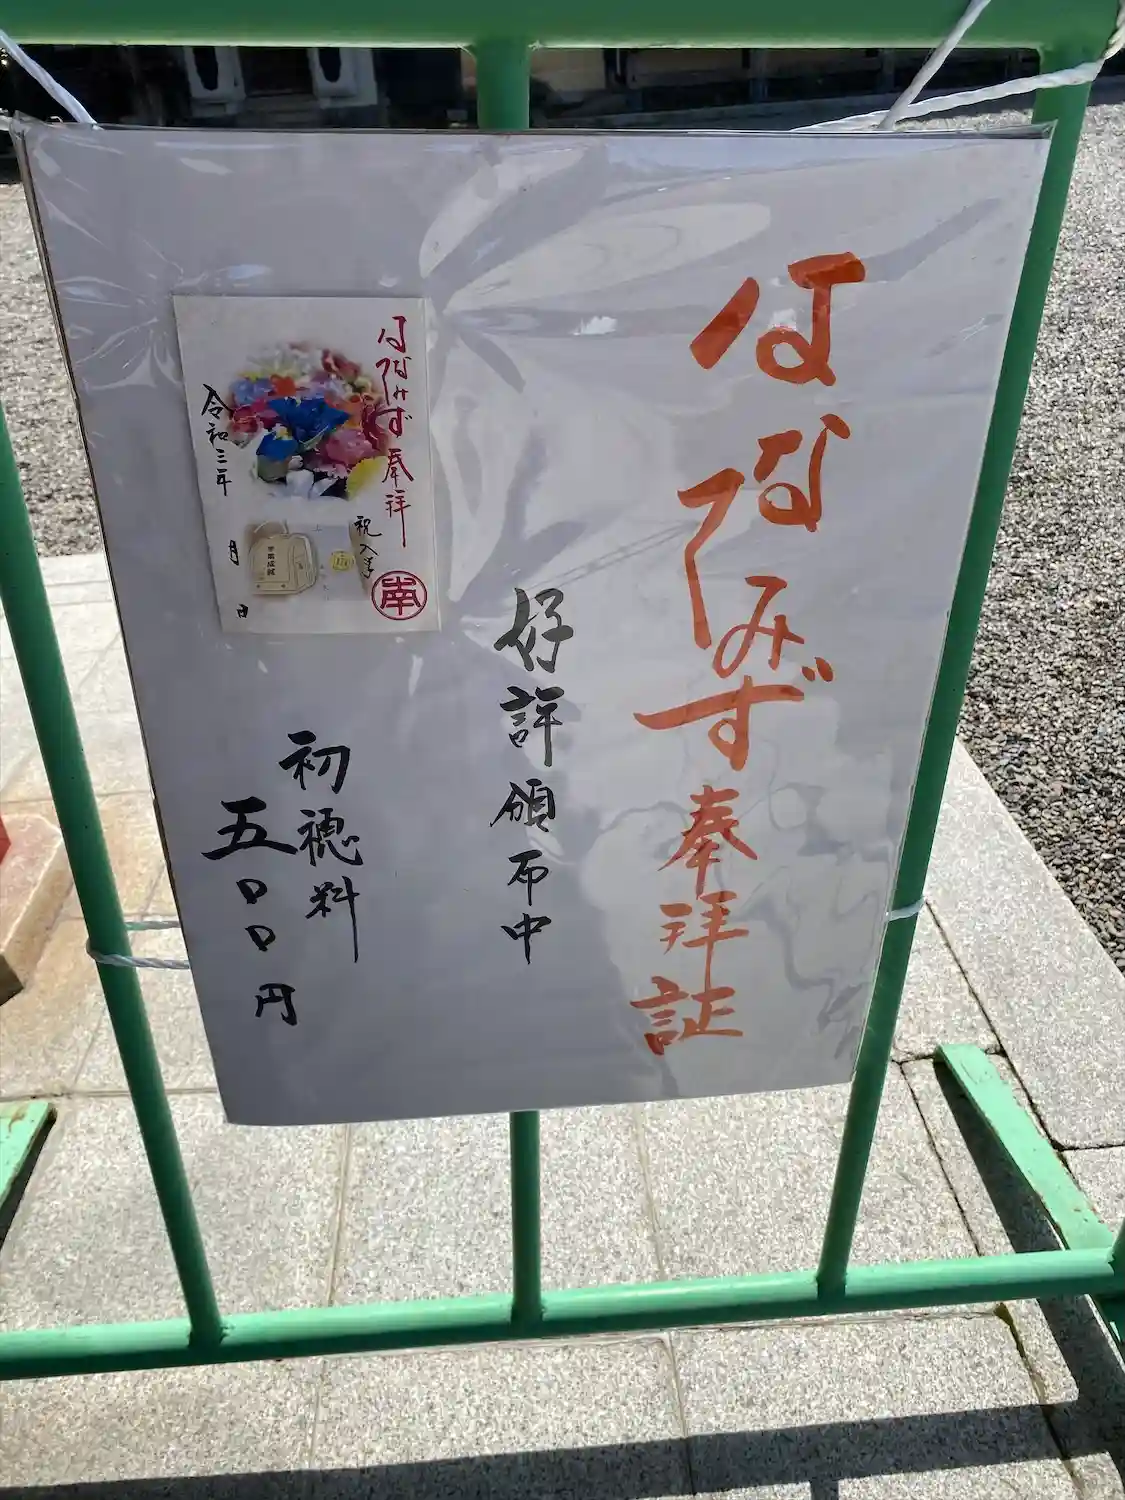 はなてみず奉拝証
好評頒布中
初穂料
五〇〇円
はなてみず奉拝
祝入学
令和三年 月 日
学業成就